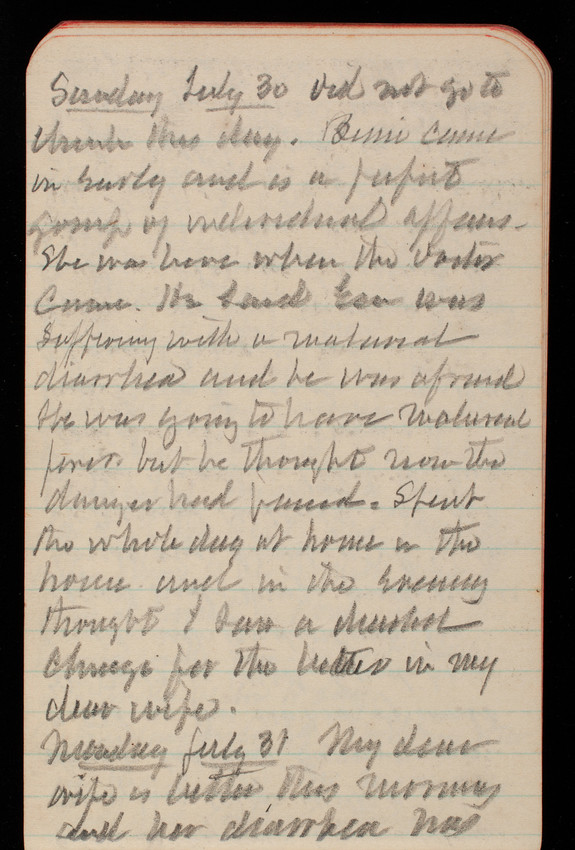 Sunday July 30 Did not go to
Church this day. came
in early and is a perfect
gossip of individual affairs.
She was here when the doctor
Came. He said was
Suffering with a malarial
diarrhea and he was afraid
She was going to have malarial
fever but he thought now the
danger had passed. Spent
the whole day at home in the
house and in the evening
thought I saw a decided
Change for the better in my
dear wife.
Monday July 31 My dear
wife is better this morning
and her diarrhea has